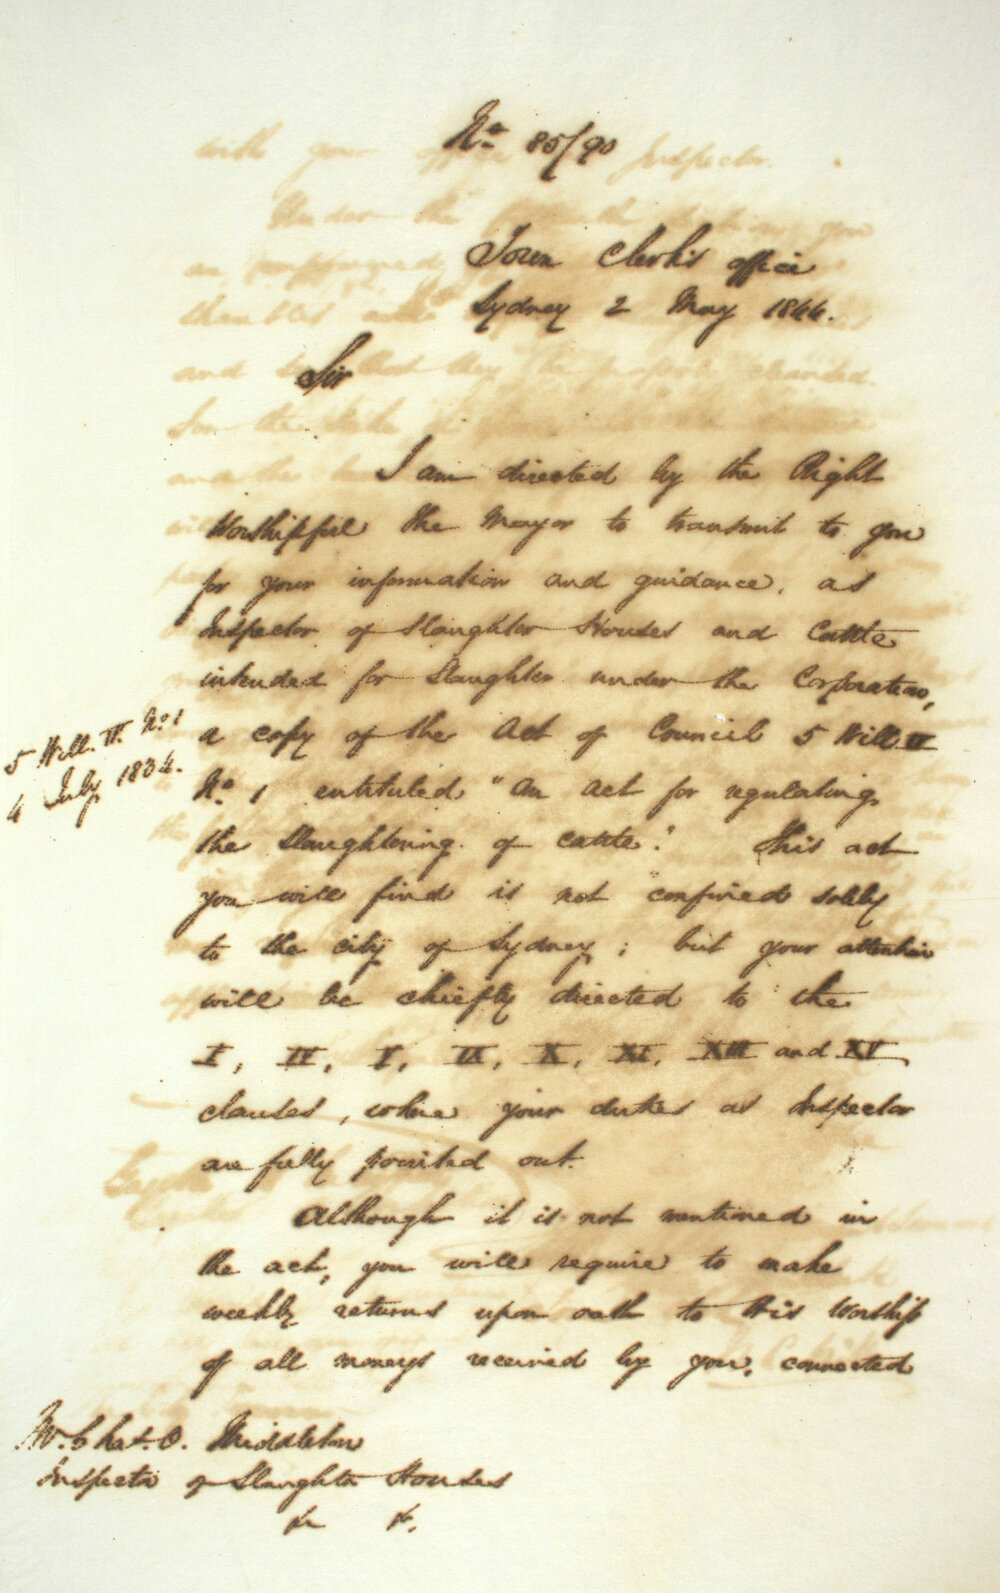 No 85/90
Town Clerk's office
Sydney 2 May 1844.
Sir
I am directed by the Right
Worshipful the Mayor to transmit to you
for your information and guidance, as
Inspector of Slaughter Houses and Cattle
intended for Slaughter under the Corporation,
a copy of the Act of Council 5 Will. IV
No 1 entituled "An act for regulating
the Slaughtering of cattle." This act
you will find is not confined solely
to the city of Sydney; but your attention
will be chiefly directed to the
I, IV, V, IX, X, XI, XIII and XV
clauses, where your duties as Inspector
are fully pointed out.
Although it is not mentioned in
the act, you will require to make
weekly returns upon oath to His Worship
of all moneys received by you, connected
5 Will. IV. No 1
4 July 1834.
Mr. Chas. O. Middleton
Inspector of Slaughter Houses
&c &c.